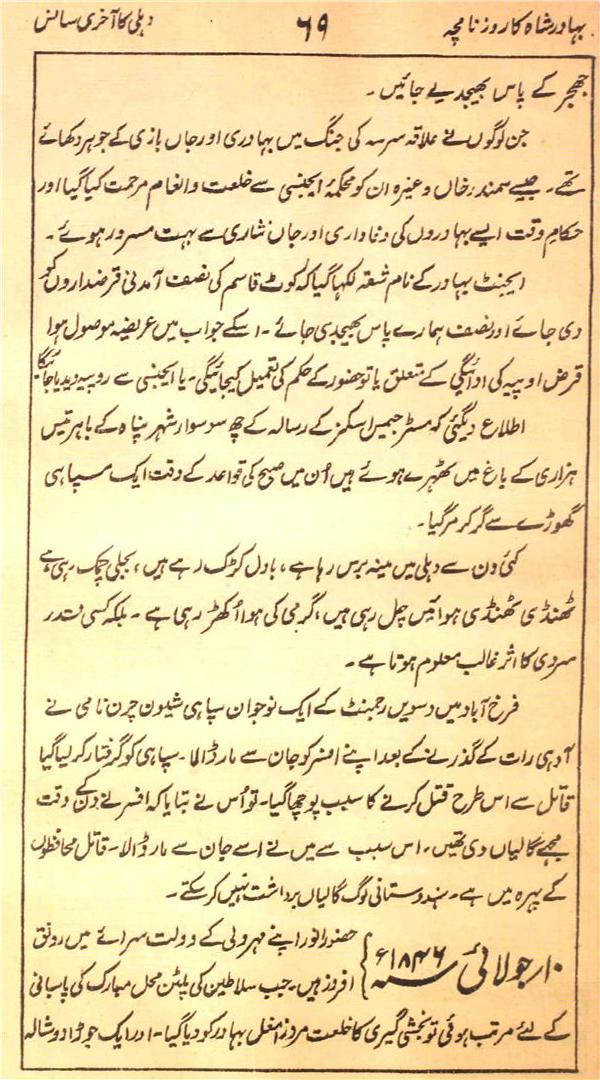 بہادر شاہ کا روزنامچہ ۶۹ دہلی کا آخری سانس
جھجر کے پاس بھیجدیے جائیں۔
جن لوگوں نے علاقہ سرسہ کی جنگ میں بہادری اور جاں بازی کے جوہر دکھائے
تھے۔ جیسے سمندر خاں وغیرہ ان کو محکمۂ ایجنسی سے خلعت و انعام مرحمت کیا گیا اور
حکام وقت ایسے بہادروں کی وفاداری اور جاں نثاری سے بہت مسرور ہوئے۔
ایجنٹ بہادر کے نام شقہ لکھا گیا کہ کوٹ قاسم کی نصف آمدنی قرضداروں کو
دی جائے اور نصف ہمارے پاس بھیجدی جائے۔ اسکے جواب میں عریضہ موصول ہوا
قرض اوپیہ کی ادائیگی کے متعلق یا تو حضور کے حکم کی تعمیل کیجائیگی۔ یا ایجنسی سے روپیہ دیدیا جائیگا
اطلاع دیگئی کہ مسٹر جمیس اسکنر کے رسالہ کے چھ سو سوار شہر پناہ کے باہر تیس
ہزاری کے باغ میں ٹھہرے ہوئے ہیں اُن میں صبح کی قواعد کے وقت ایک سپاہی
گھوڑے سے گر کر مر گیا۔
کئی دن سے دہلی میں مینہ برس رہا ہے، بادل کڑک رہے ہیں، بجلی چمک رہی ہے
ٹھنڈی ٹھنڈی ہوائیں چل رہی ہیں، گرمی کی ہوا اُکھڑ رہی ہے۔ بلکہ کسی قدر
سردی کا اثر غالب معلوم ہوتا ہے۔
فرخ آباد میں دسویں رجمنٹ کے ایک نوجوان سپاہی شیلون چرن نامی نے
آدہی رات کے گذرنے کے بعد اپنے افسر کو جان سے مار ڈالا۔ سپاہی کو گرفتار کر لیا گیا
قاتل سے اس طرح قتل کرنے کا سبب پوچھا گیا۔ تو اُس نے بتایا کہ افسر نے دن کے وقت
مجھے گالیاں دی تھیں۔ اس سبب سے میں نے اسے جان سے مار ڈالا۔ قاتل محافظوں
کے پہرہ میں ہے۔ ہندوستانی لوگ گالیاں برداشت نہیں کر سکتے۔
۱۰ر جولائی سنہ ۱۸۴۶ء } حضور انور اپنے مہرولی کے دولت سرائے میں رونق
افروز ہیں۔ جب سلاطین کی پلٹن محل مبارک کی پاسبانی
کے لئے مرتب ہوئی تو بخشی گیری کا خلعت مرزا مغل بہادر کو دیا گیا۔ اور ایک جوڑا دوشالہ